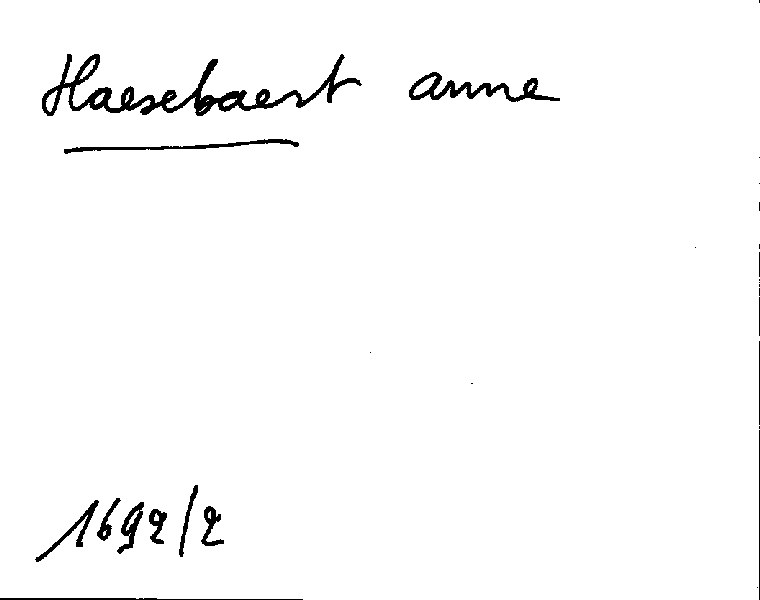 Haesebaert anne
1692/2